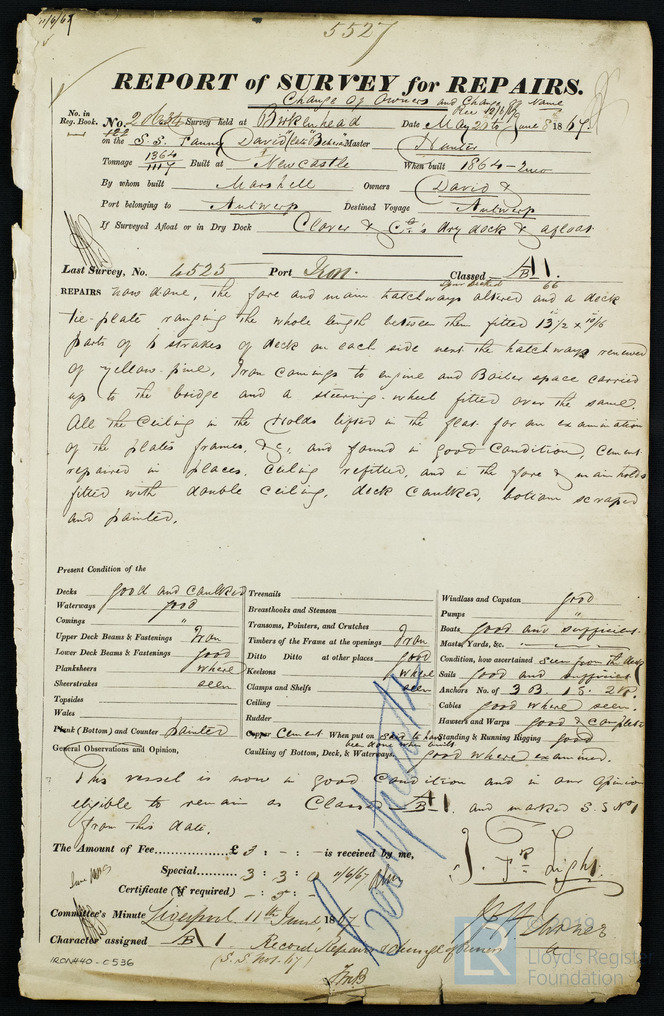 11/6/67
5527
REPORT of SURVEY for REPAIRS.
Change of Owners and Change of Name
No. in Reg. Book.
No. Survey held at Birkenhead Date May 20th June 8 1867
on the S.S. Fanny David (late Bahiana) Master Hunter
Tonnage 1364 Built at Newcastle When built 1864
By whom built Marshall Owners David &
Port belonging to Antwerp Destined Voyage Antwerp
If Surveyed Afloat or in Dry Dock Clover & Co's dry dock & afloat
Last Survey, No. 6525 Port Iron. Classed A 1.
REPAIRS now done, the fore and main hatchways altered and a deck
tie-plate ranging the whole length between them fitted 13 1/2 x 10/16
parts of 6 strakes of deck on each side next the hatchways renewed
of yellow pine, Iron comings to engine and Boiler space carried
up to the bridge and a steering-wheel fitted over the same.
All the Ceiling in the Holds lifted in the flat for an examination
of the plates frames, &c, and found in good Condition, Cement
repaired in places. Ceiling refitted, and in the fore & main holds
fitted with double Ceiling, deck caulked, bottom scraped
and painted.
Present Condition of the
Decks good and caulked
Waterways good
Comings "
Upper Deck Beams & Fastenings Iron
Lower Deck Beams & Fastenings good
Planksheers where
Sheerstrakes seen
Topsides
Wales
Plank (Bottom) and Counter painted
Treenails
Breasthooks and Stemson
Transoms, Pointers, and Crutches
Timbers of the Frame at the openings Iron
Ditto Ditto at other places good
Keelsons where
Clamps and Shelfs seen
Ceiling
Rudder
Copper Cement When put on said to have been done when built
Caulking of Bottom, Deck, & Waterways good where examined.
Windlass and Capstan good
Pumps "
Boats good and sufficient.
Masts, Yards, &c. "
Condition, how ascertained seen from the deck
Sails good and sufficient
Anchors No. of 3 B. 1 S. 2 K.
Cables good where seen
Hawsers and Warps good & complete
Standing & Running Rigging good
General Observations and Opinion,
This vessel is now in good Condition and in our Opinion
eligible to remain as Classed A 1. and marked S.S No 1
from this date.
The Amount of Fee............£ 3 : - : - is received by me,
Special....... 3 : 3 : 0 11/6/67
Certificate (if required) - : 5 : -
J. Fr Light.
Committee's Minute Liverpool, 11th June, 1867
Character assigned A 1 Record Repairs & Change of Owners
(S.S. No1. 67)
IRON440-0536
© 2019
Lloyd's Register
Foundation